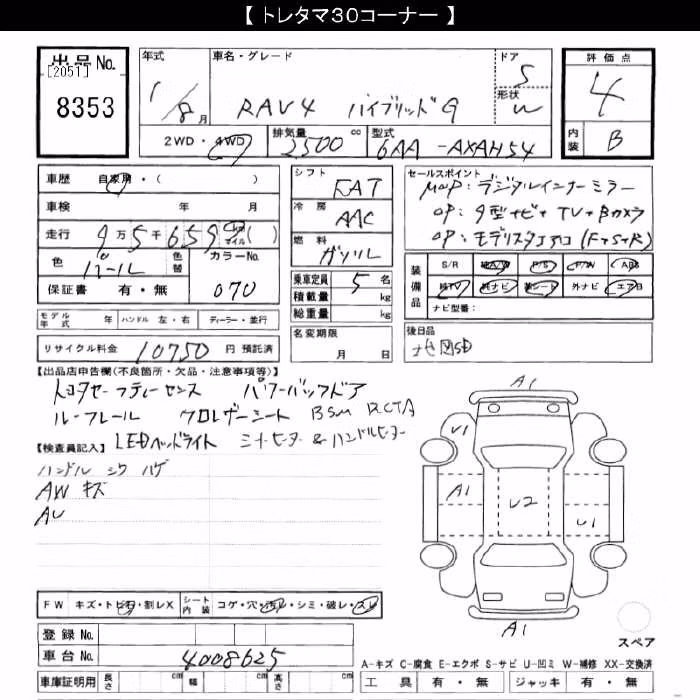 【 トレタマ30コーナー 】
出品No.
[2051]
8353
年式
1/8月
車名・グレード
RAV4 ハイブリッドG
ドア
5
形状
W
評価点
4
内装
B
2WD・4WD
排気量
2500 cc
型式
6AA-AXAH54
車歴 自家用・( )
車検 年 月
走行 9万5千659 ( )
色
パール
色替
カラーNo.
070
保証書 有・無
シフト
FAT
冷房
AAC
燃料
ガソリン
乗車定員 5 名
積載量 kg
総重量 kg
セールスポイント
MOP:デジタルインナーミラー
OP:9型ナビ+TV+Bカメラ
OP:モデリスタエアロ(F+S+R)
装備品
S/R 純A/W P/S P/W ABS
純TV 純ナビ 革シート 外ナビ エアB
ナビ型番:
モデル年式 年 ハンドル 左・右 ディーラー・並行
リサイクル料金 10750 円 預託済
名変期限
月 日
後日品
地図SD
【出品店申告欄(不良箇所・欠品・注意事項等)】
トヨタセーフティーセンス パワーバックドア
ルーフレール クロレザーシート BSM RCTA
LEDヘッドライト シートヒーター&ハンドルヒーター
【検査員記入】
ハンドル シワ ハゲ
AW キズ
AU
FW キズ・トビ石・割レX シート内装 コゲ・穴・汚レ・シミ・破レ・スレ
登録 No.
車台 No. 4008625
車庫証明用 長さ cm 幅 cm 高さ cm
A1
V1
A1
U2
U1
A1
スペア
A-キズ C-腐食 E-エクボ S-サビ U-凹ミ W-補修 XX-交換済
工具 有・無 ジャッキ 有・無